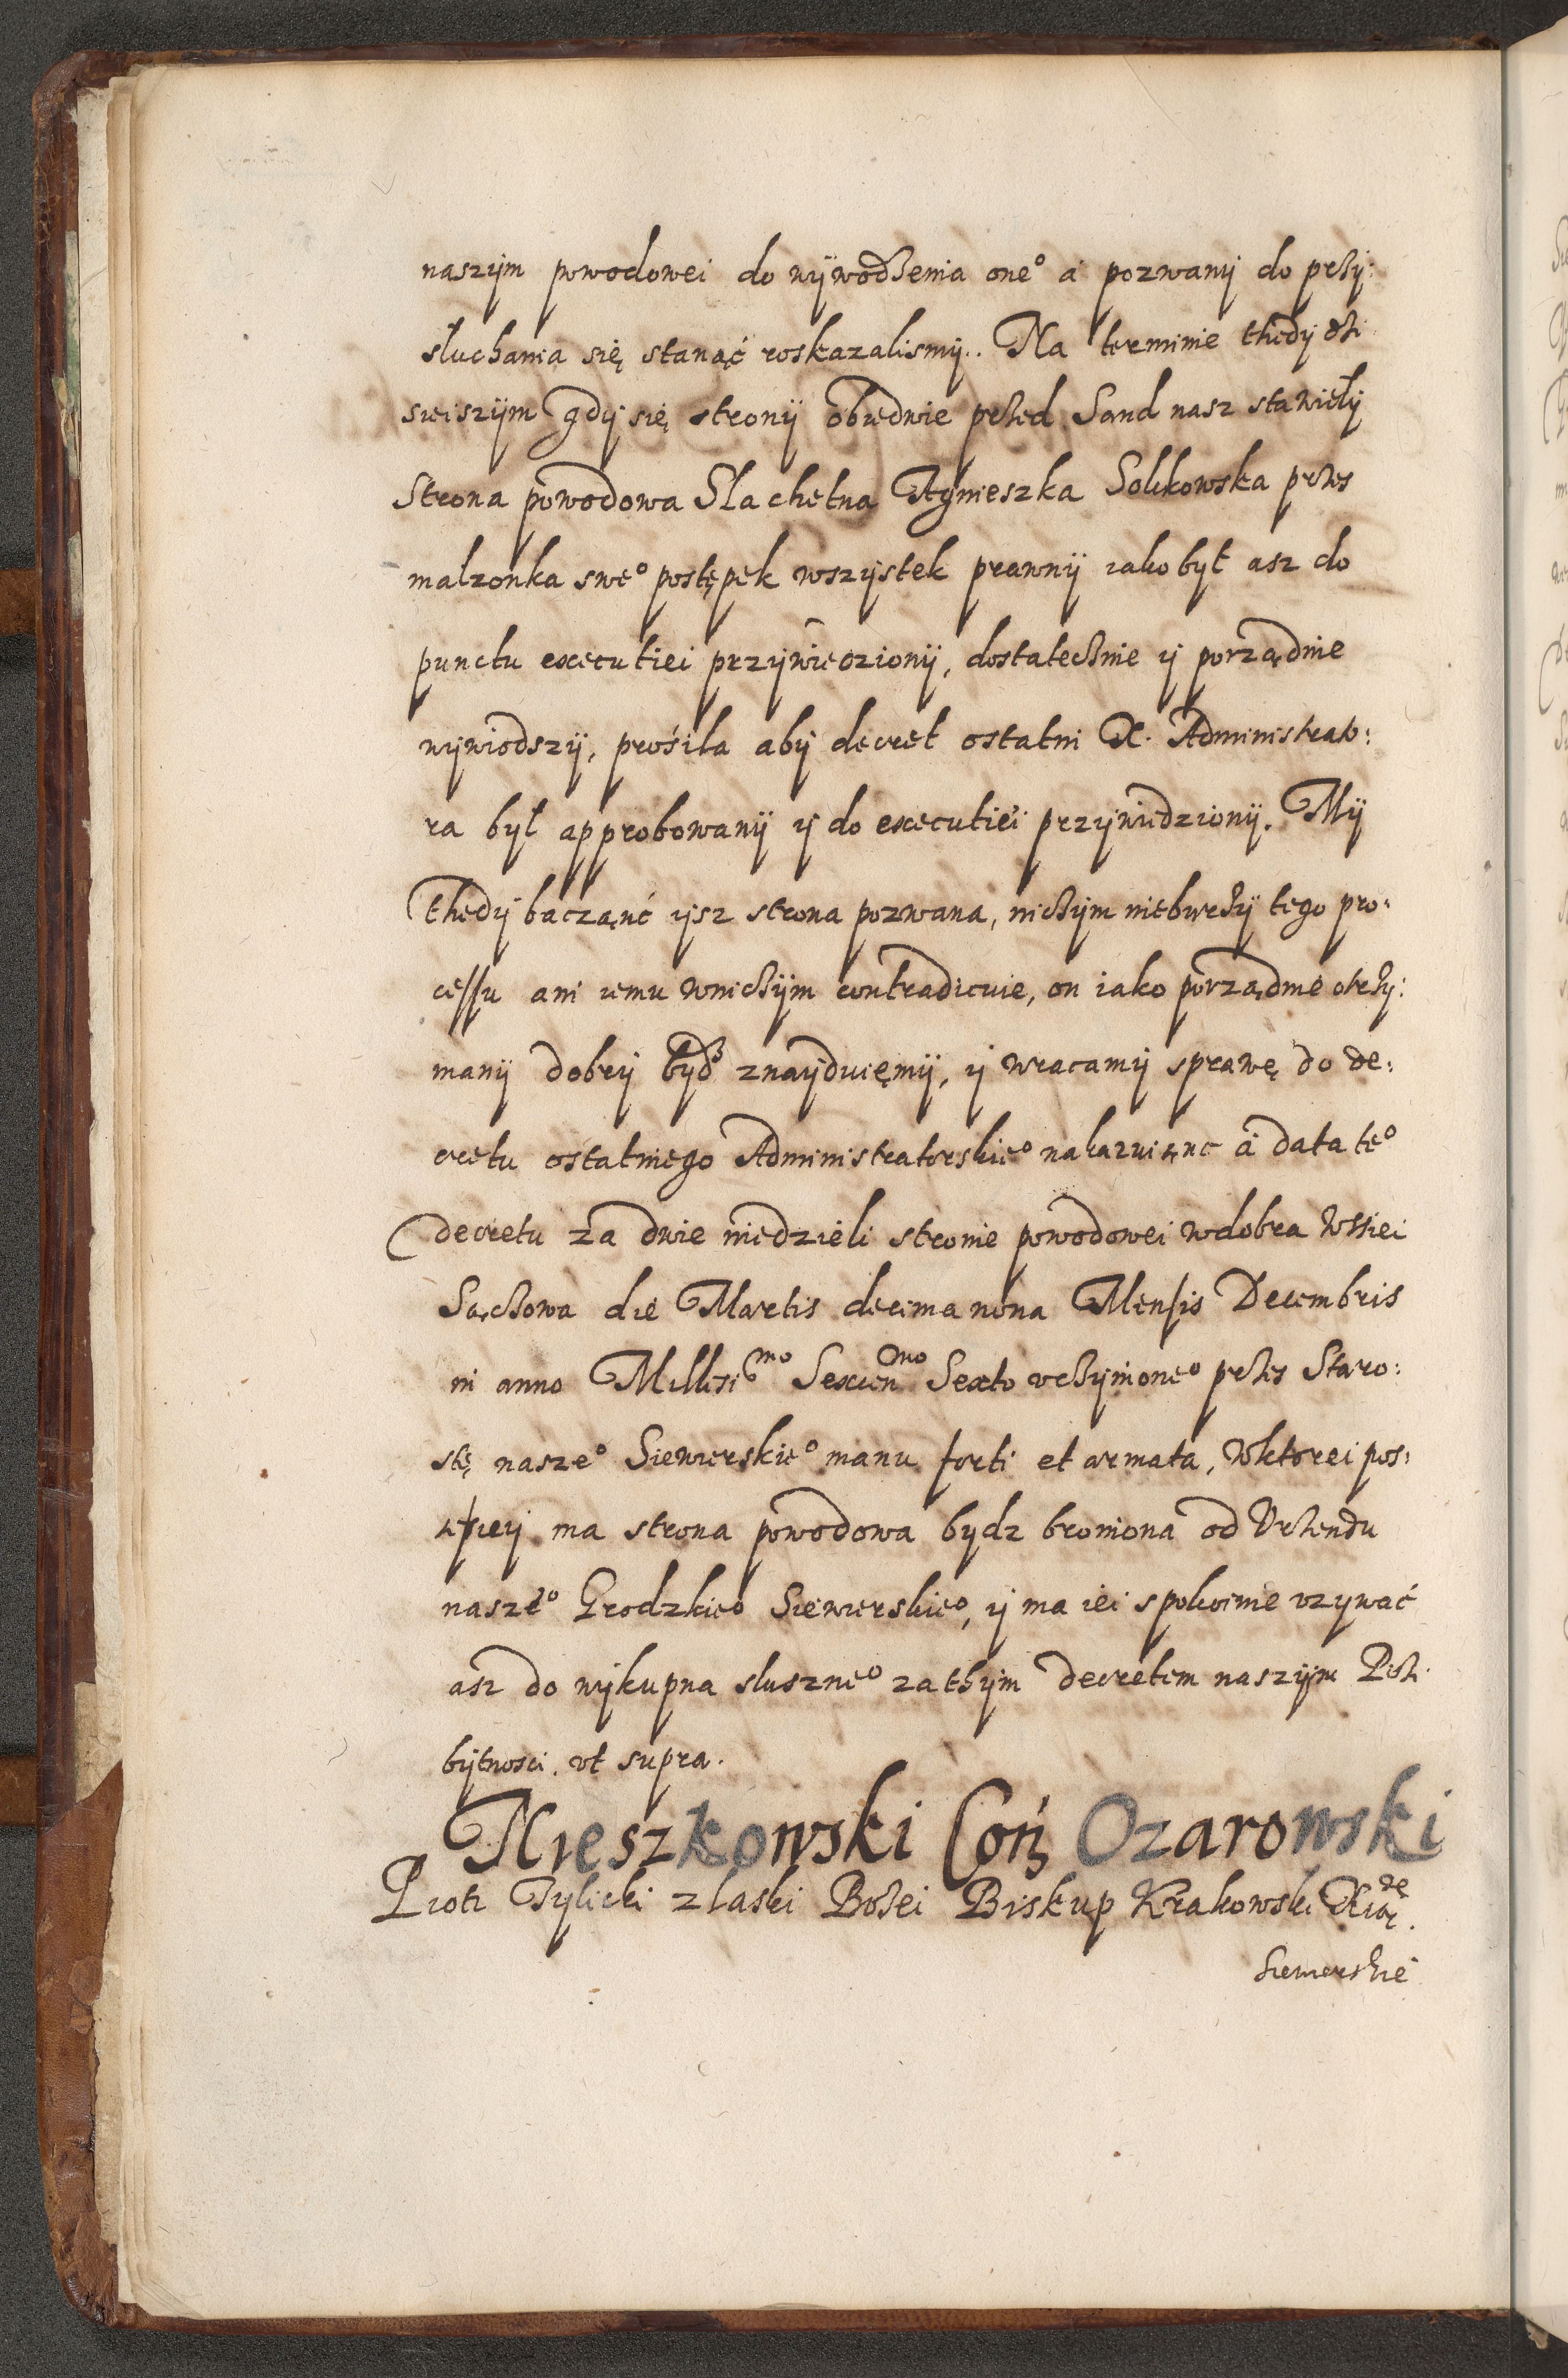 naszÿm powodowei do wÿwodzenia oneº a pozwanÿ do przÿ:
słuchania się stanąć roskazalismÿ. Na terminie thedÿ dzi
sieiszÿm gdÿ się stronÿ obiedwie przed Sand nasz stawiełÿ
Strona powodowa Slachetna Agnieszka Solikowska przes
malzonka sweº postępek wszÿstek prawnÿ iako bÿł asz do
punctu executiei przÿwiedzionÿ, dostatecznie ÿ porządnie
wÿwiodszÿ, prosiła abÿ decret ostatni X. Administrato:
ra bÿł approbowanÿ ÿ do executiei przÿwiedzionÿ. Mÿ
thedÿ bacząnć ÿsz strona pozwana, niczÿm nieburzÿ tego pro:
cessu ani iemu wniczÿm contradicuie, on iako porządnie otrzÿ:
manÿ dobrÿ bÿdz znaÿduięmÿ, ÿ wracamÿ sprawę do de:
cretu ostatniego Administratorskieº nakazuiąnc a data teº
decretu za dwie niedzieli stronie powodowei wdobra wsiei
Sączowa die Martis decima nona Mensis Decembris
in anno Millesimo Sexcenmo Sexto uczÿnioneº przes Staro:
stę naszeº Siewierskieº manu forti et armata, wktorei pos:
ma strona powodowa bÿdz broniona od Urzendu
naszeº Grodzkieº Siewierskieº, ÿ ma iei spokoinie uzÿwać
asz do wÿkupna sluszneº za thÿm decretem naszÿm Prze
bÿtnosci ut supra.
Mieszkowski Con Ozarowski
Piotr Tylicki z laski Bozei Biskup Krakowski Xiąże
Siewierskie